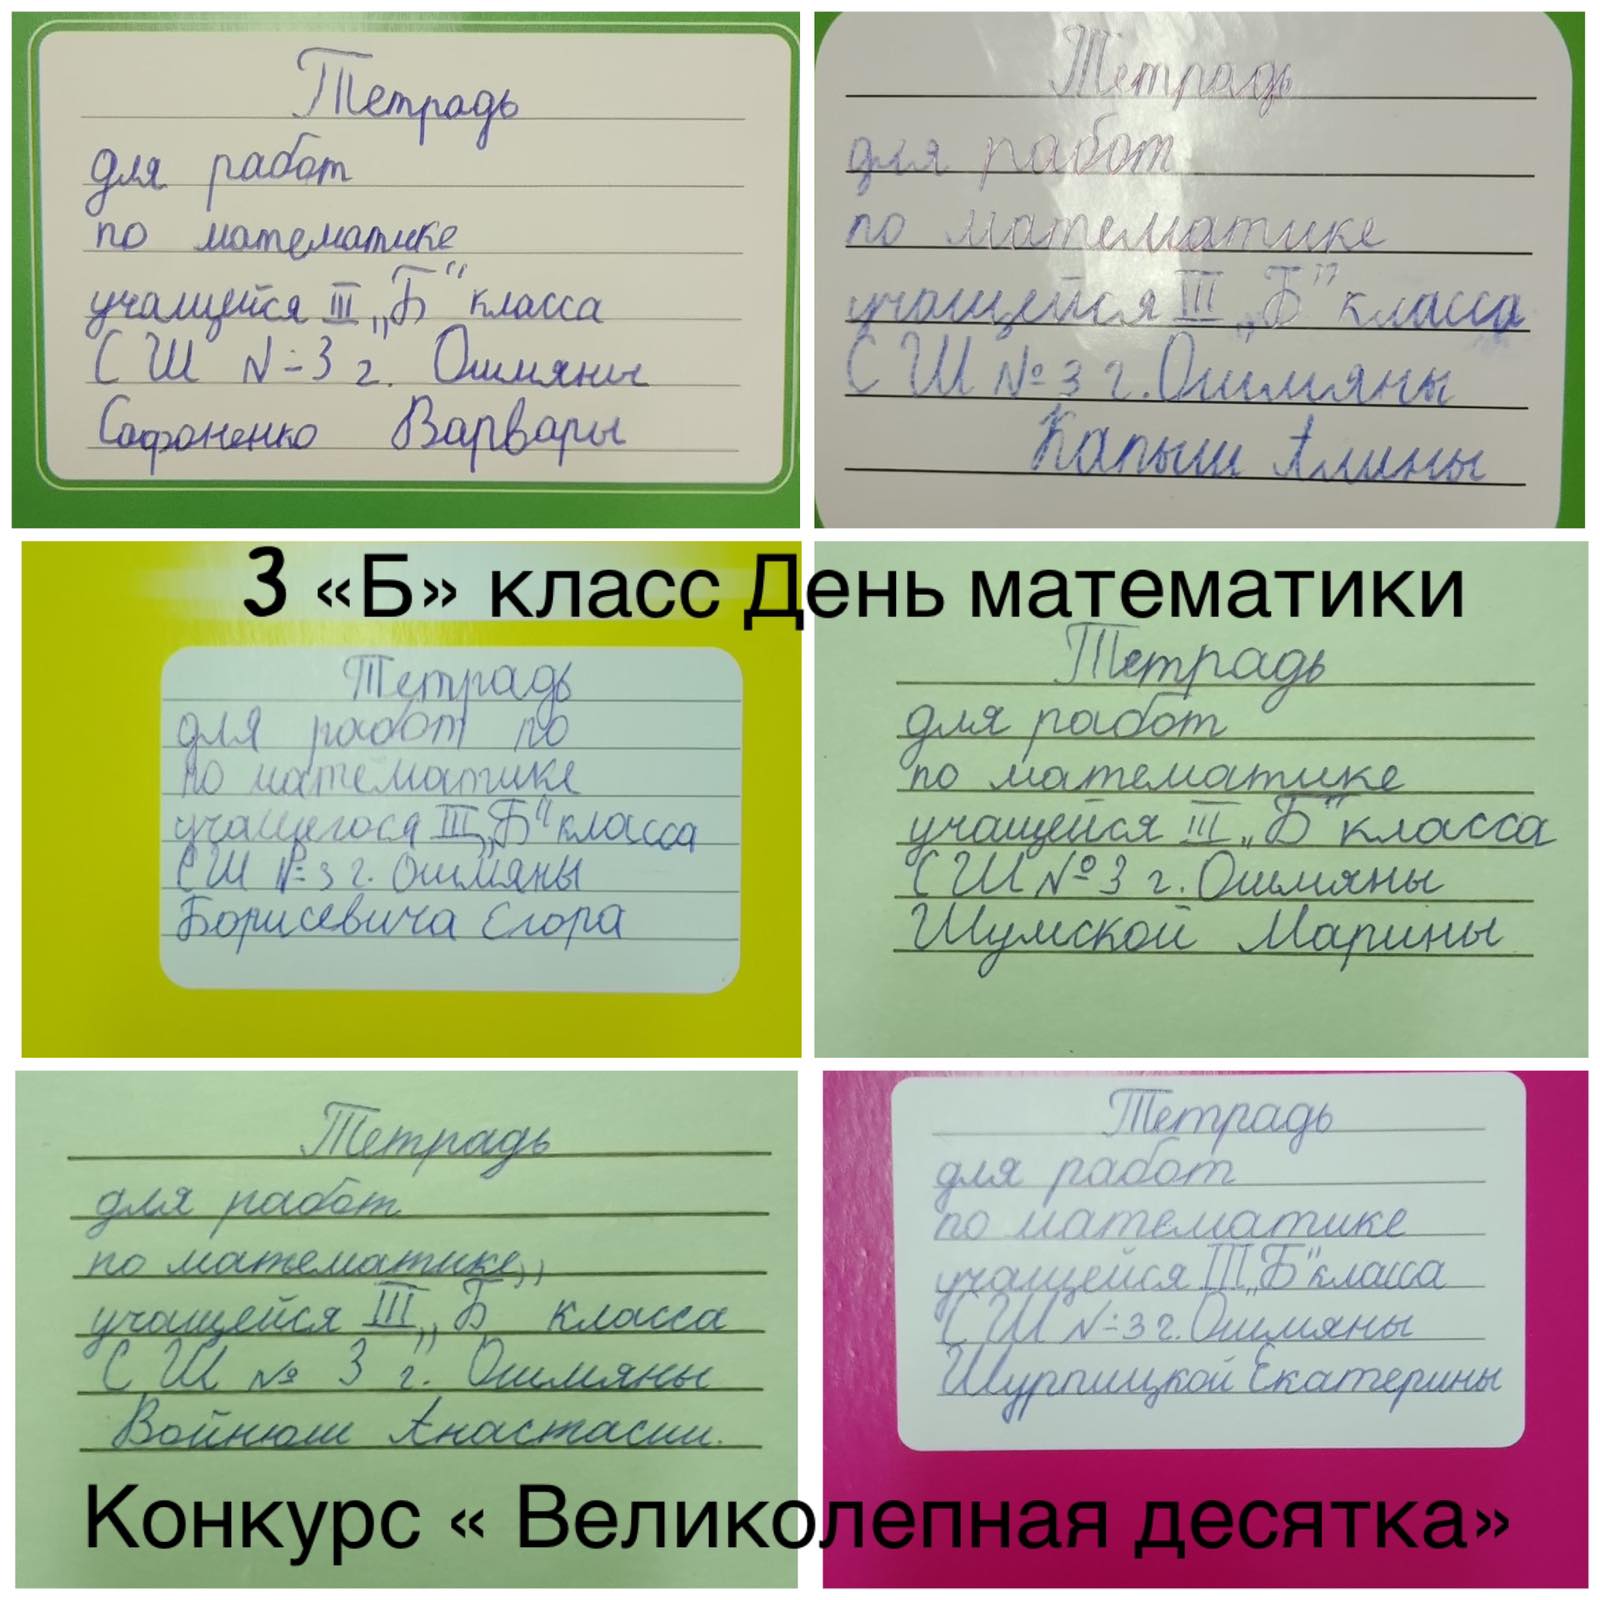 Тетрадь
для работ
по математике
учащейся III „Б“ класса
СШ №3 г. Ошмяны
Сафоненко Варвары
Тетрадь
для работ
по математике
учащейся III „Б" класса
СШ № 3 г. Ошмяны
Капыш Алины
3 «Б» класс День математики
Тетрадь
для работ по
по математике
учащегося III „Б" класса
СШ № 3 г. Ошмяны
Борисевича Егора
Тетрадь
для работ
по математике
учащейся III „Б" класса
СШ № 3 г. Ошмяны
Шумской Марины
Тетрадь
для работ
по математике
учащейся III „Б" класса
СШ № 3 г. Ошмяны
Войнюш Анастасии.
Тетрадь
для работ
по математике
учащейся III „Б" класса
СШ №3 г. Ошмяны
Шурпицкой Екатерины
Конкурс « Великолепная десятка»